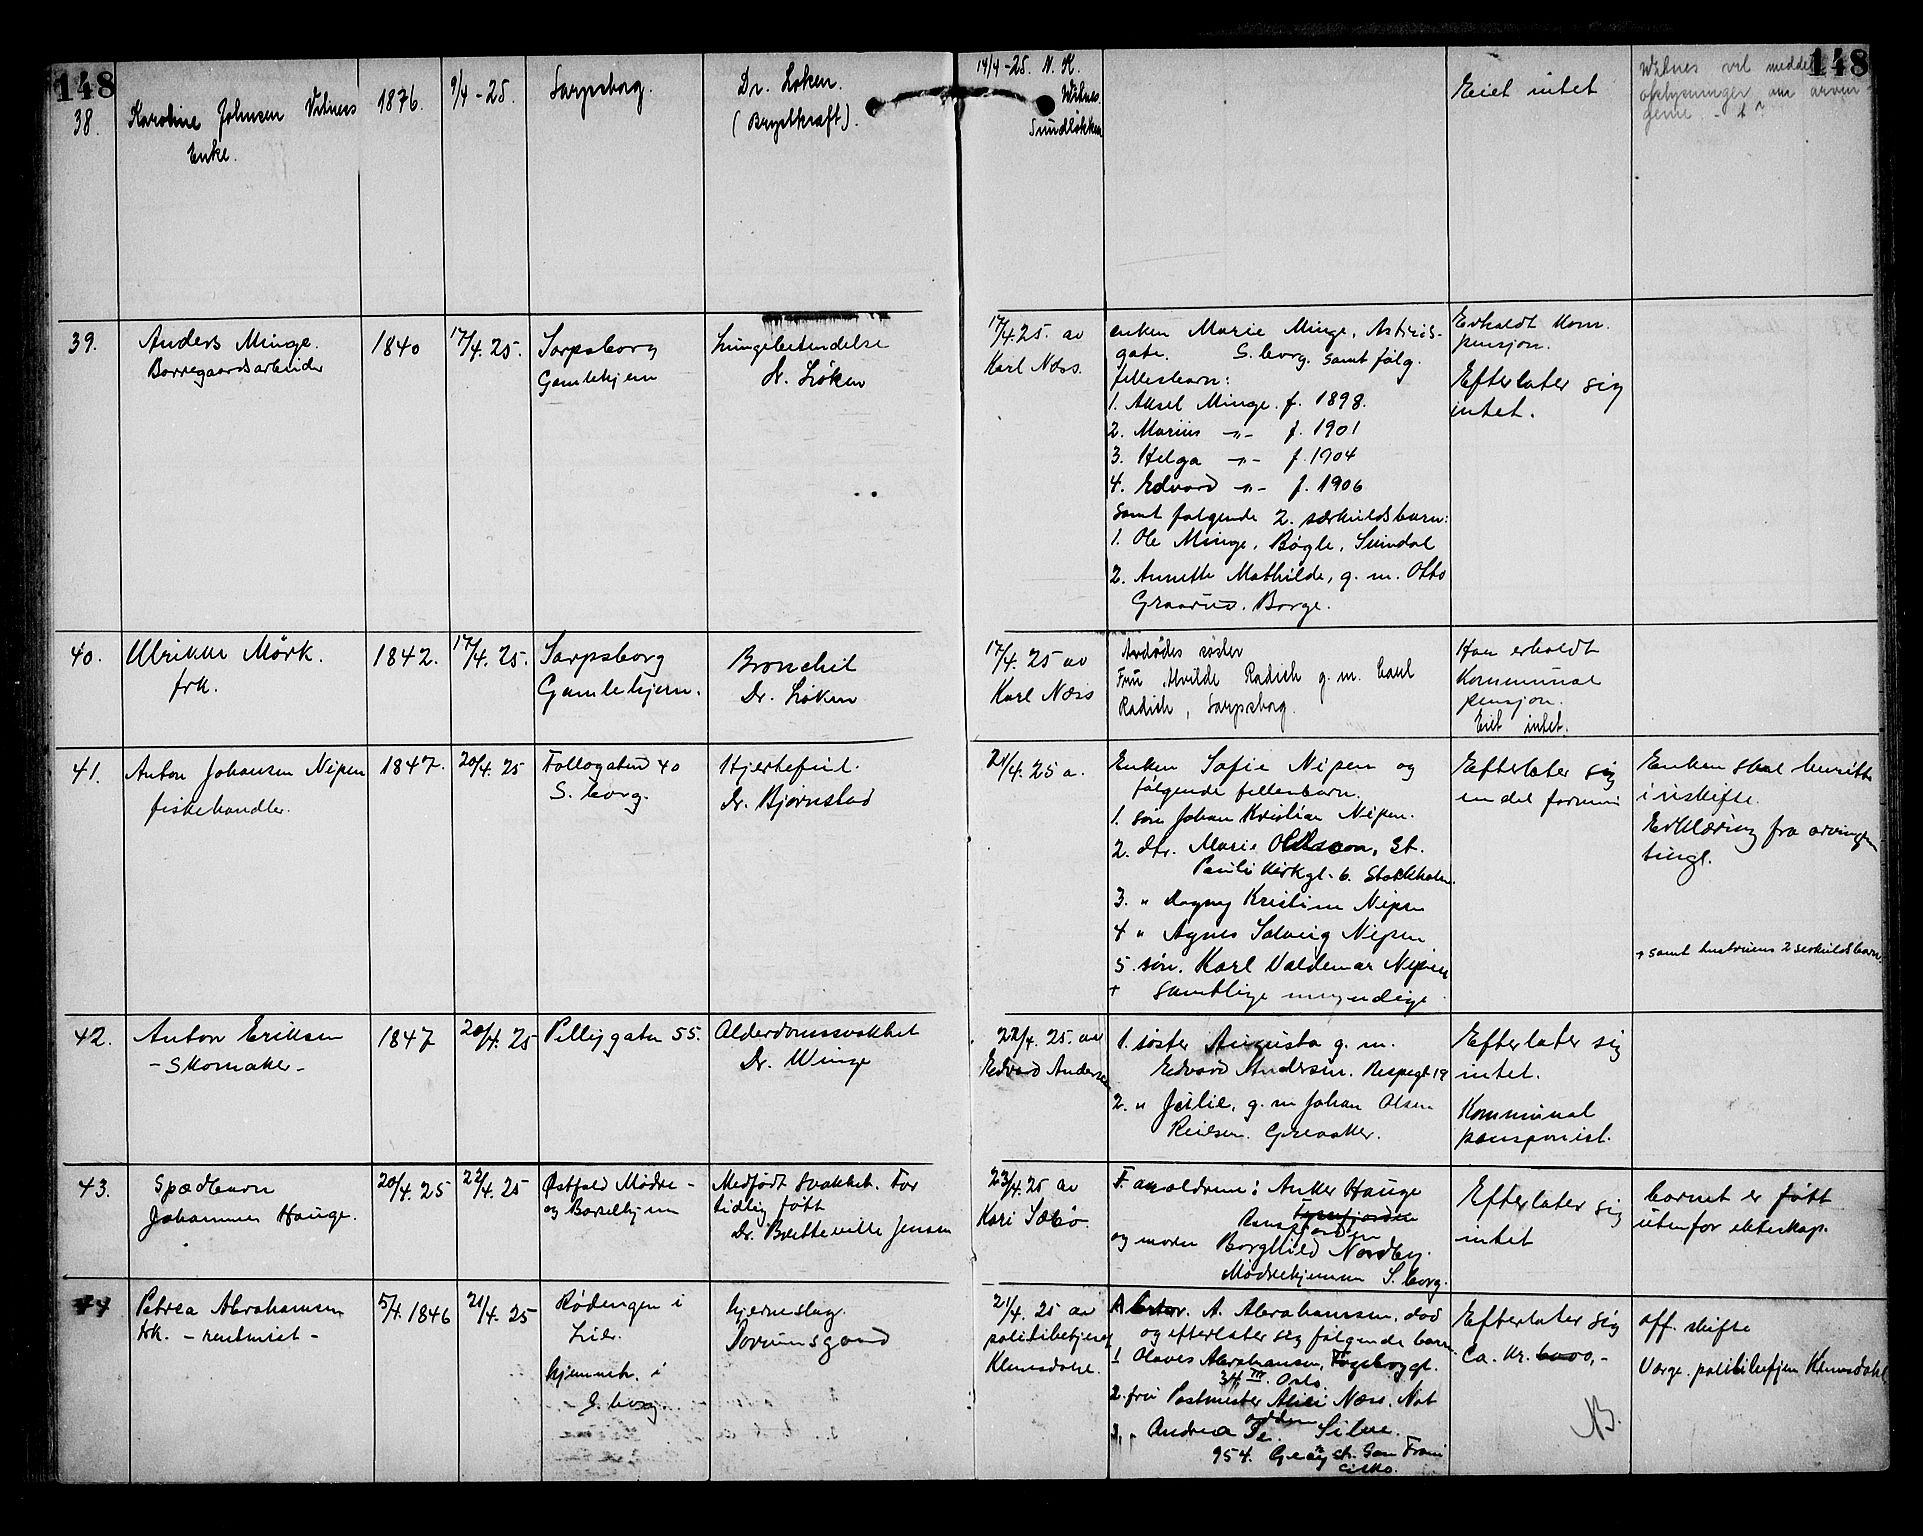 148
148
38.
Karoline Johnsen Vitnes
Enke.
1876.
9/4-25.
Sarpsborg.
Dr. Løken.
(Brystkræft).
14/4-25. N. K.
Witnes
Sundløkken
Eiet intet
Witnes vil meddele
oplysninger om arvin-
gene.
39.
Anders Minge.
Borregaardsarbeider
1840
17/4.25.
Sarpsborg
Gamlehjem
Lungebetendelse
Dr. Løken
17/4.25. av
Karl Næss.
enken Marie Minge, Astrids-
gate. S.borg. samt følg.
fellesbarn:
1. Aksel Minge. f. 1898.
2. Marius -"- f. 1901
3. Helga -"- f. 1904
4. Edvard -"- f. 1906
samt følgende 2. særkuldsbarn:
1. Ole Minge, Bøgle, Sundal
2. Annette Mathilde, g. m. Otto
Graarud. Borge.
Erholdt kom.
pensjon.
Efterlater sig
intet.
40.
Ulrikke Mörk.
frk.
1842.
17/4.25.
Sarpsborg
Gamlehjem.
Bronchit
Dr. Løken
17/4.25 av
Karl Næss
Avdødes søster
Fru Alvilde Radich g. m. Carl
Radich, Sarpsborg.
Hun erholdt
Kommunal
pensjon.
Eiet intet.
41.
Anton Johansen Nipen
fiskehandler.
1847.
20/4.25
Follogaten 40
S. borg.
Hjertefeil.
Dr. Bjørnstad
21/4.25 a.
Enken Sofie Nipen og
følgende fellesbarn.
1. søn Johan Kristian Nipen.
2. dtr. Marie Ohlsson, St.
Pauli Kirkgt. 6. Stockholm.
3. " Dagny Kristine Nipen
4 " Agnes Solveig Nipen
5. søn. Karl Valdemar Nipen
+ samtlige myndige
Efterlater sig
en del formue
Enken skal hensitte
i uskifte.
Erklæring fra arvingen
tingl.
+ samt hustruens 2 særkuldsbarn.
42.
Anton Eriksen
- Skomaker -
1847
20/4.25
Pellygaten 55.
Alderdomssvakhet
Dr. Winge
22/4.25. av
Edvard Andersen
1. søster Augusta g. m.
Edvard Andersen. Respegt 19
2. " Julie, g. m Johan Olsen
Greaaker.
Efterlater sig
intet.
Kommunal
pensjonist.
43.
Spædbarn
Johannes Hauge.
20/4.25
22/4.25
Østfold Mødre-
og Barselhjem
Medfødt svakhet. For
tidlig født
Dr. Bretteville Jensen
23/4.25 av
Kari Sæbø
Foraldrene: Anker Hauge
og moren Borghild Nordby.
Mødrehjemmet S.borg.
Efterlater sig
intet
barnet er født
utenfor ekteskap.
44
Petrea Abrahamsen
frk. - rentnist -
5/4.1846
21/4.25
Rødengen i
Lier.
hjemmeh. i
S.borg
hjerneslag.
21/4.25 av
politibetjent
Klemsdahl.
A. Abrahamsen, død
og efterlater sig følgende barn.
1 Olaves Abrahamsen,
34 III Oslo.
2. fru Postmester Alice Næss. Not
odden
3. " Andrea Silne.
954. Geary St. San Fran
cisko.
Efterlater sig
ca. kr. 6000,-
off. skifte
Værge. politibetjen Klemsdahl